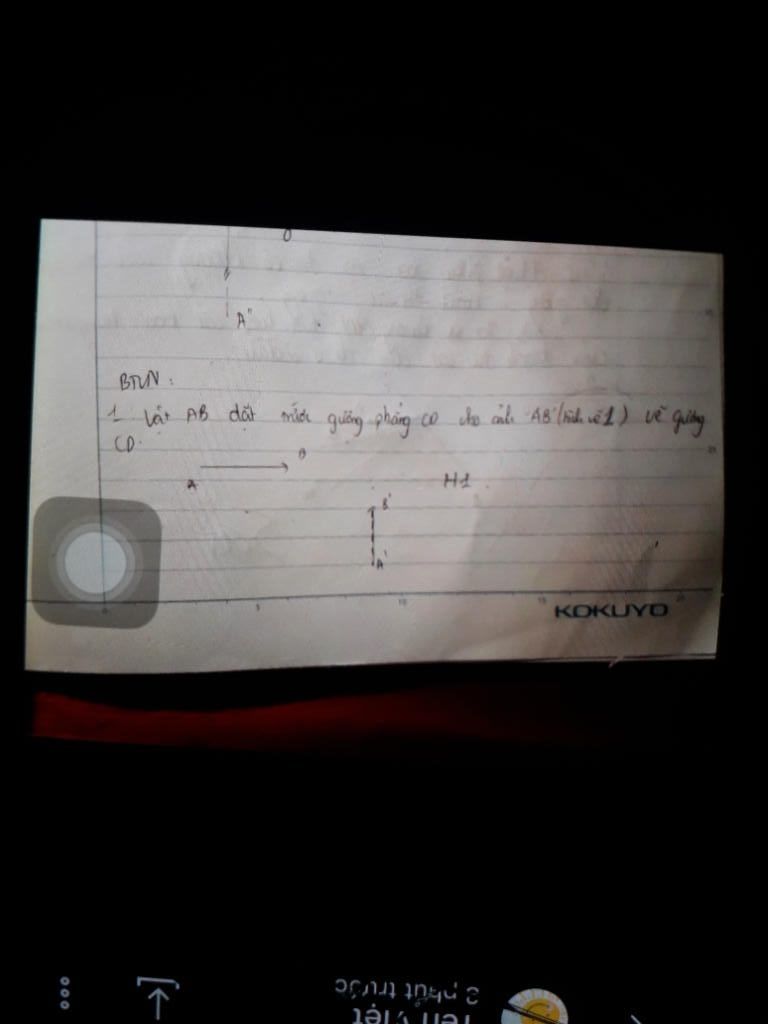 A"
BTVN:
1. Vật AB đặt trước gương phẳng CD cho ảnh A'B' (hình vẽ 1) vẽ gương
CD.
B
A
H1
B'
A'
5 10 15 20
KOKUYO
3 phút trước
Tên Việt